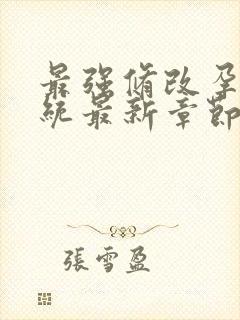 最强脩改孕
統最新章節
張雪盈